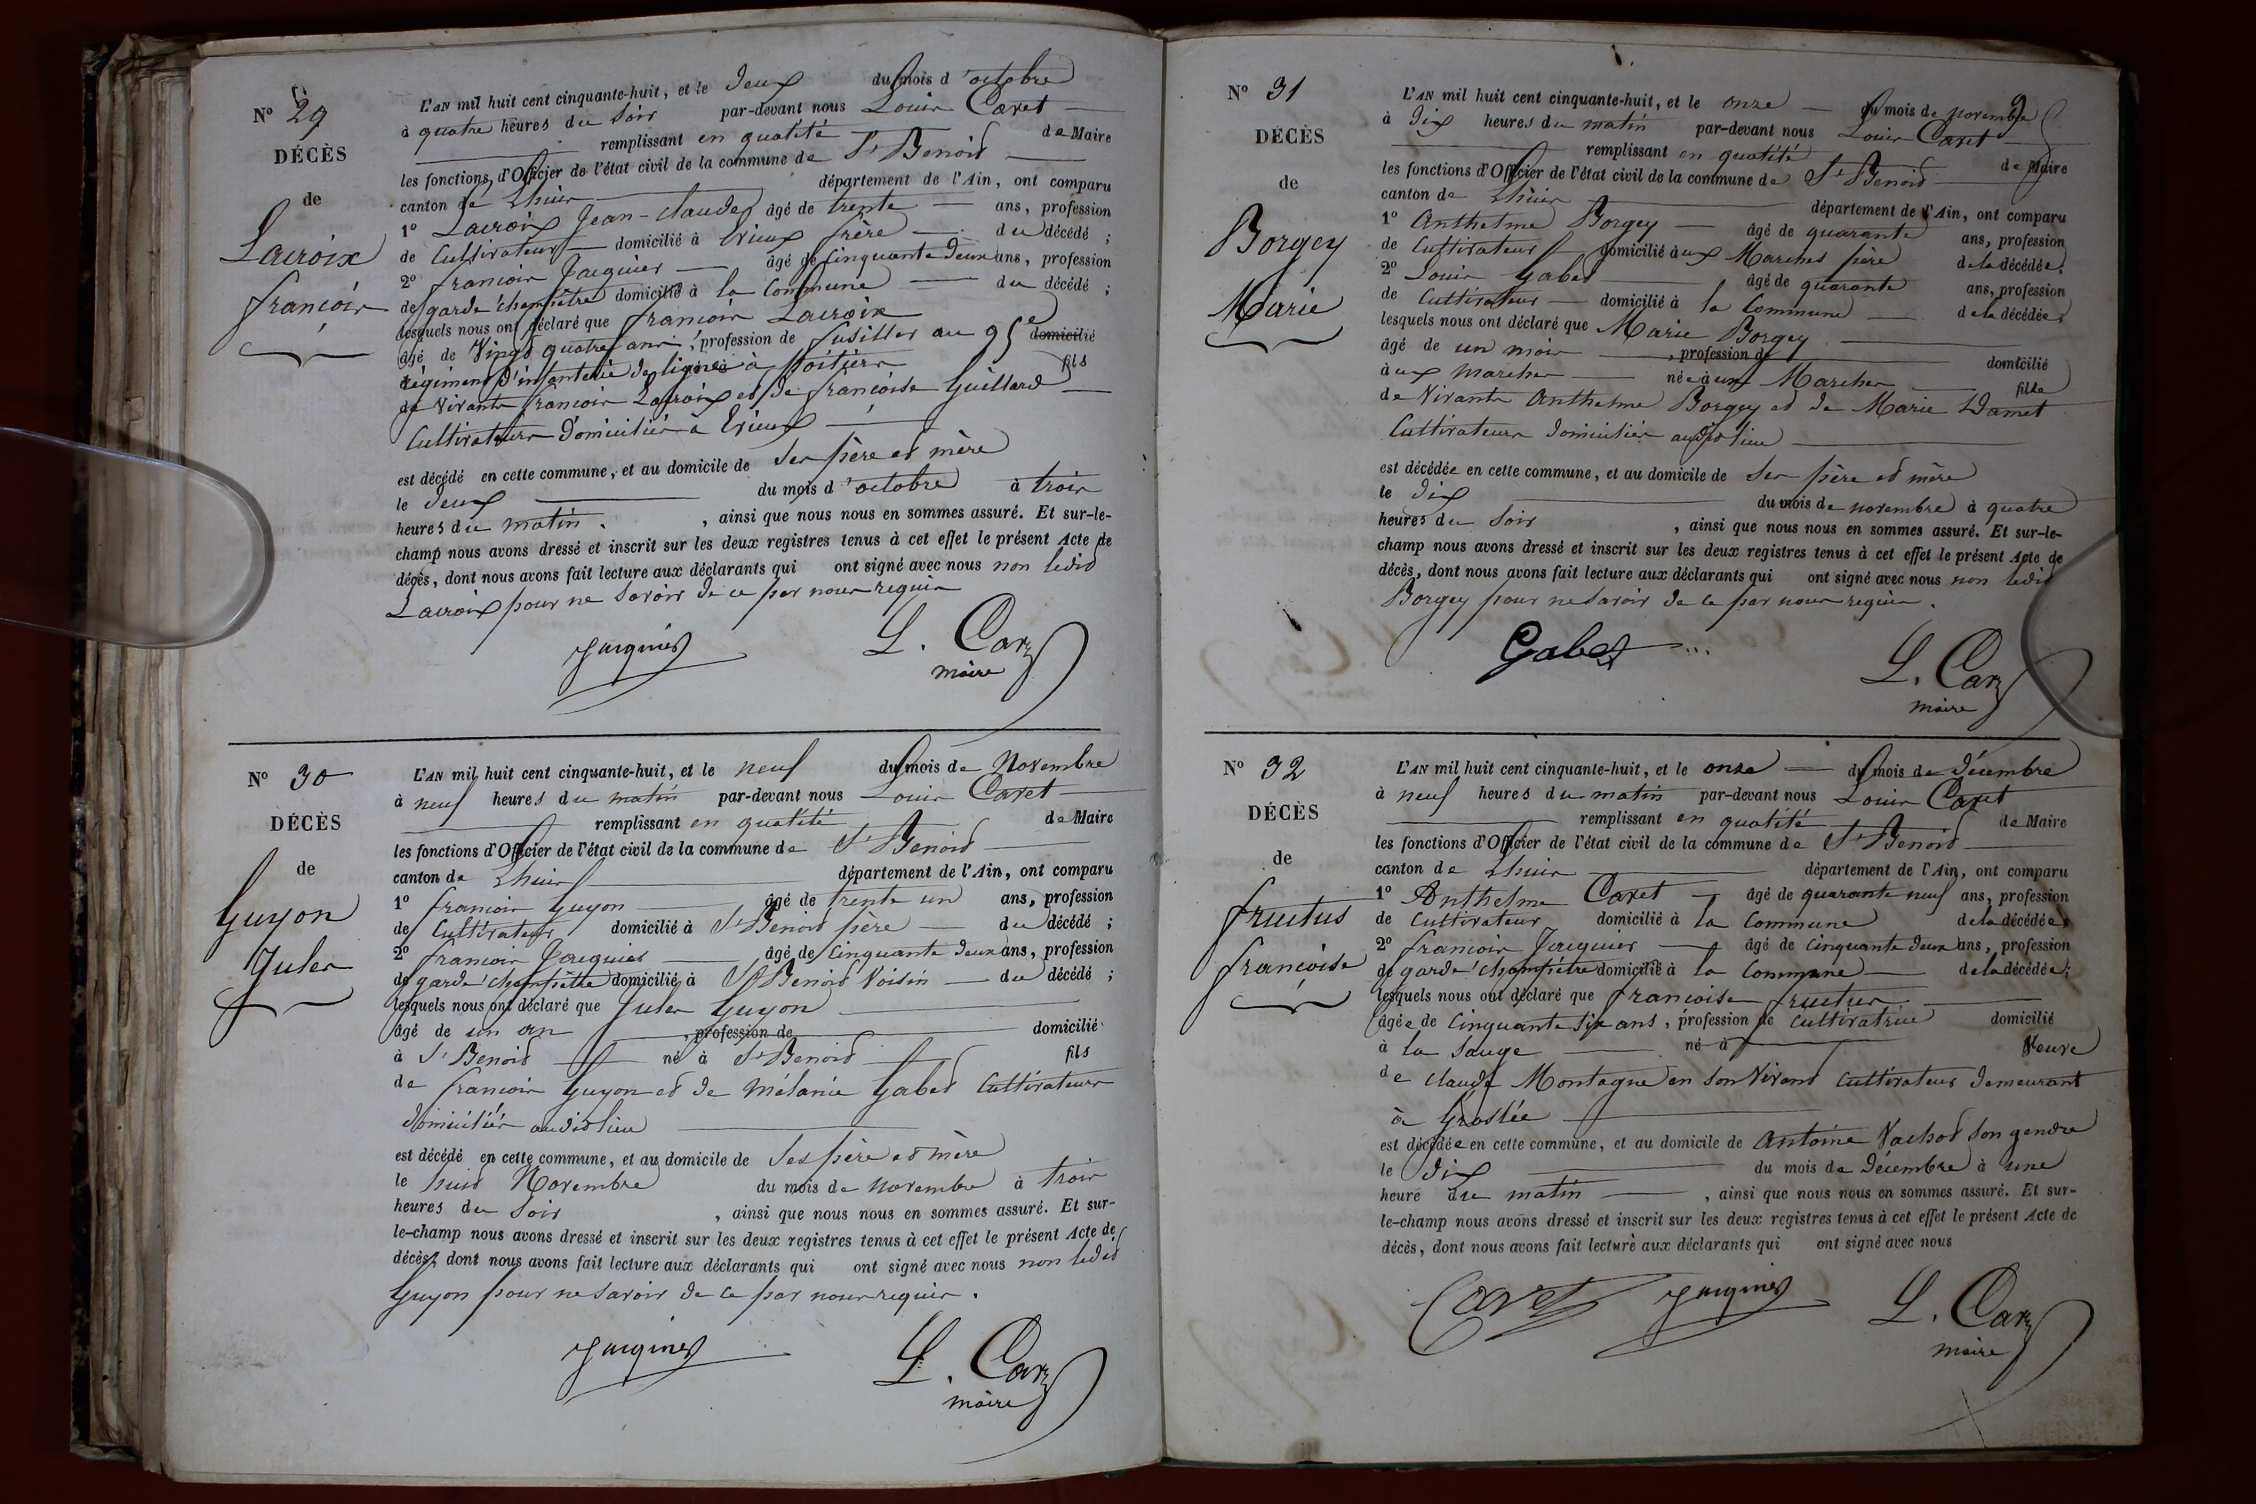 Nº 29
DÉCÈS
de
Lacroix
françois
L'AN mil huit cent cinquante-huit, et le deux du mois d'octobre
à quatre heures du soir par-devant nous Louis Caret
remplissant en qualité de Maire
les fonctions d'Officier de l'état civil de la commune de St Benoid
canton de Lhuis département de l'Ain, ont comparu
1º Lacroix Jean-claude âgé de trente ans, profession
de Cultivateur domicilié à Evieux frère du décédé ;
2º francois Jacquier âgé de Cinquante deux ans, profession
de garde champêtre domicilié à la Commune du décédé ;
lesquels nous ont déclaré que francois Lacroix
âgé de Vingt quatre ans, profession de fusiller au 95e domicilié
régiment d'infanterie de ligne à Poitiers fils
de Vivants francois Lacroix et de françoise Guillard
Cultivateurs domiciliés à Evieux
est décédé en cette commune, et au domicile de Ses père et mère
le deux du mois d'octobre à trois
heures du matin , ainsi que nous nous en sommes assuré. Et sur-le-
champ nous avons dressé et inscrit sur les deux registres tenus à cet effet le présent Acte de
décès, dont nous avons fait lecture aux déclarants qui ont signé avec nous non ledid
Lacroix pour ne savoir de ce par nous requis
Jacquier L. Car
maire
Nº 30
DÉCÈS
de
Guyon
Jules
L'AN mil huit cent cinquante-huit, et le neuf du mois de Novembre
à neuf heures du matin par-devant nous Louis Caret
remplissant en qualité de Maire
les fonctions d'Officier de l'état civil de la commune de St Benoid
canton de Lhuis département de l'Ain, ont comparu
1º francois Guyon âgé de trente un ans, profession
de Cultivateur domicilié à St Benoid père du décédé ;
2º francois Jacquier âgé de Cinquante deux ans, profession
de garde champêtre domicilié à St Benoid Voisin du décédé ;
lesquels nous ont déclaré que Jules Guyon
âgé de un an , profession de domicilié
à St Benoid né à St Benoid fils
de francois Guyon et de Mélanie Gabed Cultivateurs
domiciliés audid lieu
est décédé en cette commune, et au domicile de Ses père et mère
le huid Novembre du mois de novembre à trois
heures du Soir , ainsi que nous nous en sommes assuré. Et sur-
le-champ nous avons dressé et inscrit sur les deux registres tenus à cet effet le présent Acte de
décès, dont nous avons fait lecture aux déclarants qui ont signé avec nous non ledid
Guyon pour ne savoir de ce par nous requis.
Jacquier L. Car
maire
Nº 31
DÉCÈS
de
Borgey
Marie
L'AN mil huit cent cinquante-huit, et le onze du mois de novembre
à dix heures du matin par-devant nous Louis Caret
remplissant en qualité de Maire
les fonctions d'Officier de l'état civil de la commune de St Benoid
canton de Lhuis département de l'Ain, ont comparu
1º Anthelme Borgey âgé de quarante ans, profession
de Cultivateur domicilié aux Marches père de la décédée;
2º Louis Gabed âgé de quarante ans, profession
de Cultivateur domicilié à la Commune de la décédée;
lesquels nous ont déclaré que Marie Borgey
âgé de un mois , profession de domicilié
aux marches née aux Marches fille
de Vivants Anthelme Borgey et de Marie Damet
Cultivateurs domiciliés audid lieu
est décédée en cette commune, et au domicile de Ses père et mère
le dix du mois de novembre à quatre
heures du Soir , ainsi que nous nous en sommes assuré. Et sur-le-
champ nous avons dressé et inscrit sur les deux registres tenus à cet effet le présent Acte de
décès, dont nous avons fait lecture aux déclarants qui ont signé avec nous non ledid
Borgey pour ne savoir de ce par nous requis.
Gabet L. Car
maire
Nº 32
DÉCÈS
de
fructus
françoise
L'AN mil huit cent cinquante-huit, et le onze du mois de décembre
à neuf heures du matin par-devant nous Louis Caret
remplissant en qualité de Maire
les fonctions d'Officier de l'état civil de la commune de St Benoid
canton de Lhuis département de l'Ain, ont comparu
1º Anthelme Caret âgé de quarante neuf ans, profession
de Cultivateur domicilié à la Commune de la décédée;
2º francois Jacquier âgé de cinquante deux ans, profession
de garde champêtre domicilié à la Commune de la décédée;
lesquels nous ont déclaré que francoise fructus
âgée de Cinquante six ans, profession de Cultivatrice domicilié
à la Sauge né à Veuve
de claude Montagne en son Vivant Cultivateur demeurant
à Groslée
est décédée en cette commune, et au domicile de Antoine Vachod son gendre
le dix du mois de décembre à une
heure du matin , ainsi que nous nous en sommes assuré. Et sur-
le-champ nous avons dressé et inscrit sur les deux registres tenus à cet effet le présent Acte de
décès, dont nous avons fait lecture aux déclarants qui ont signé avec nous
Caret Jacquier L. Car
maire